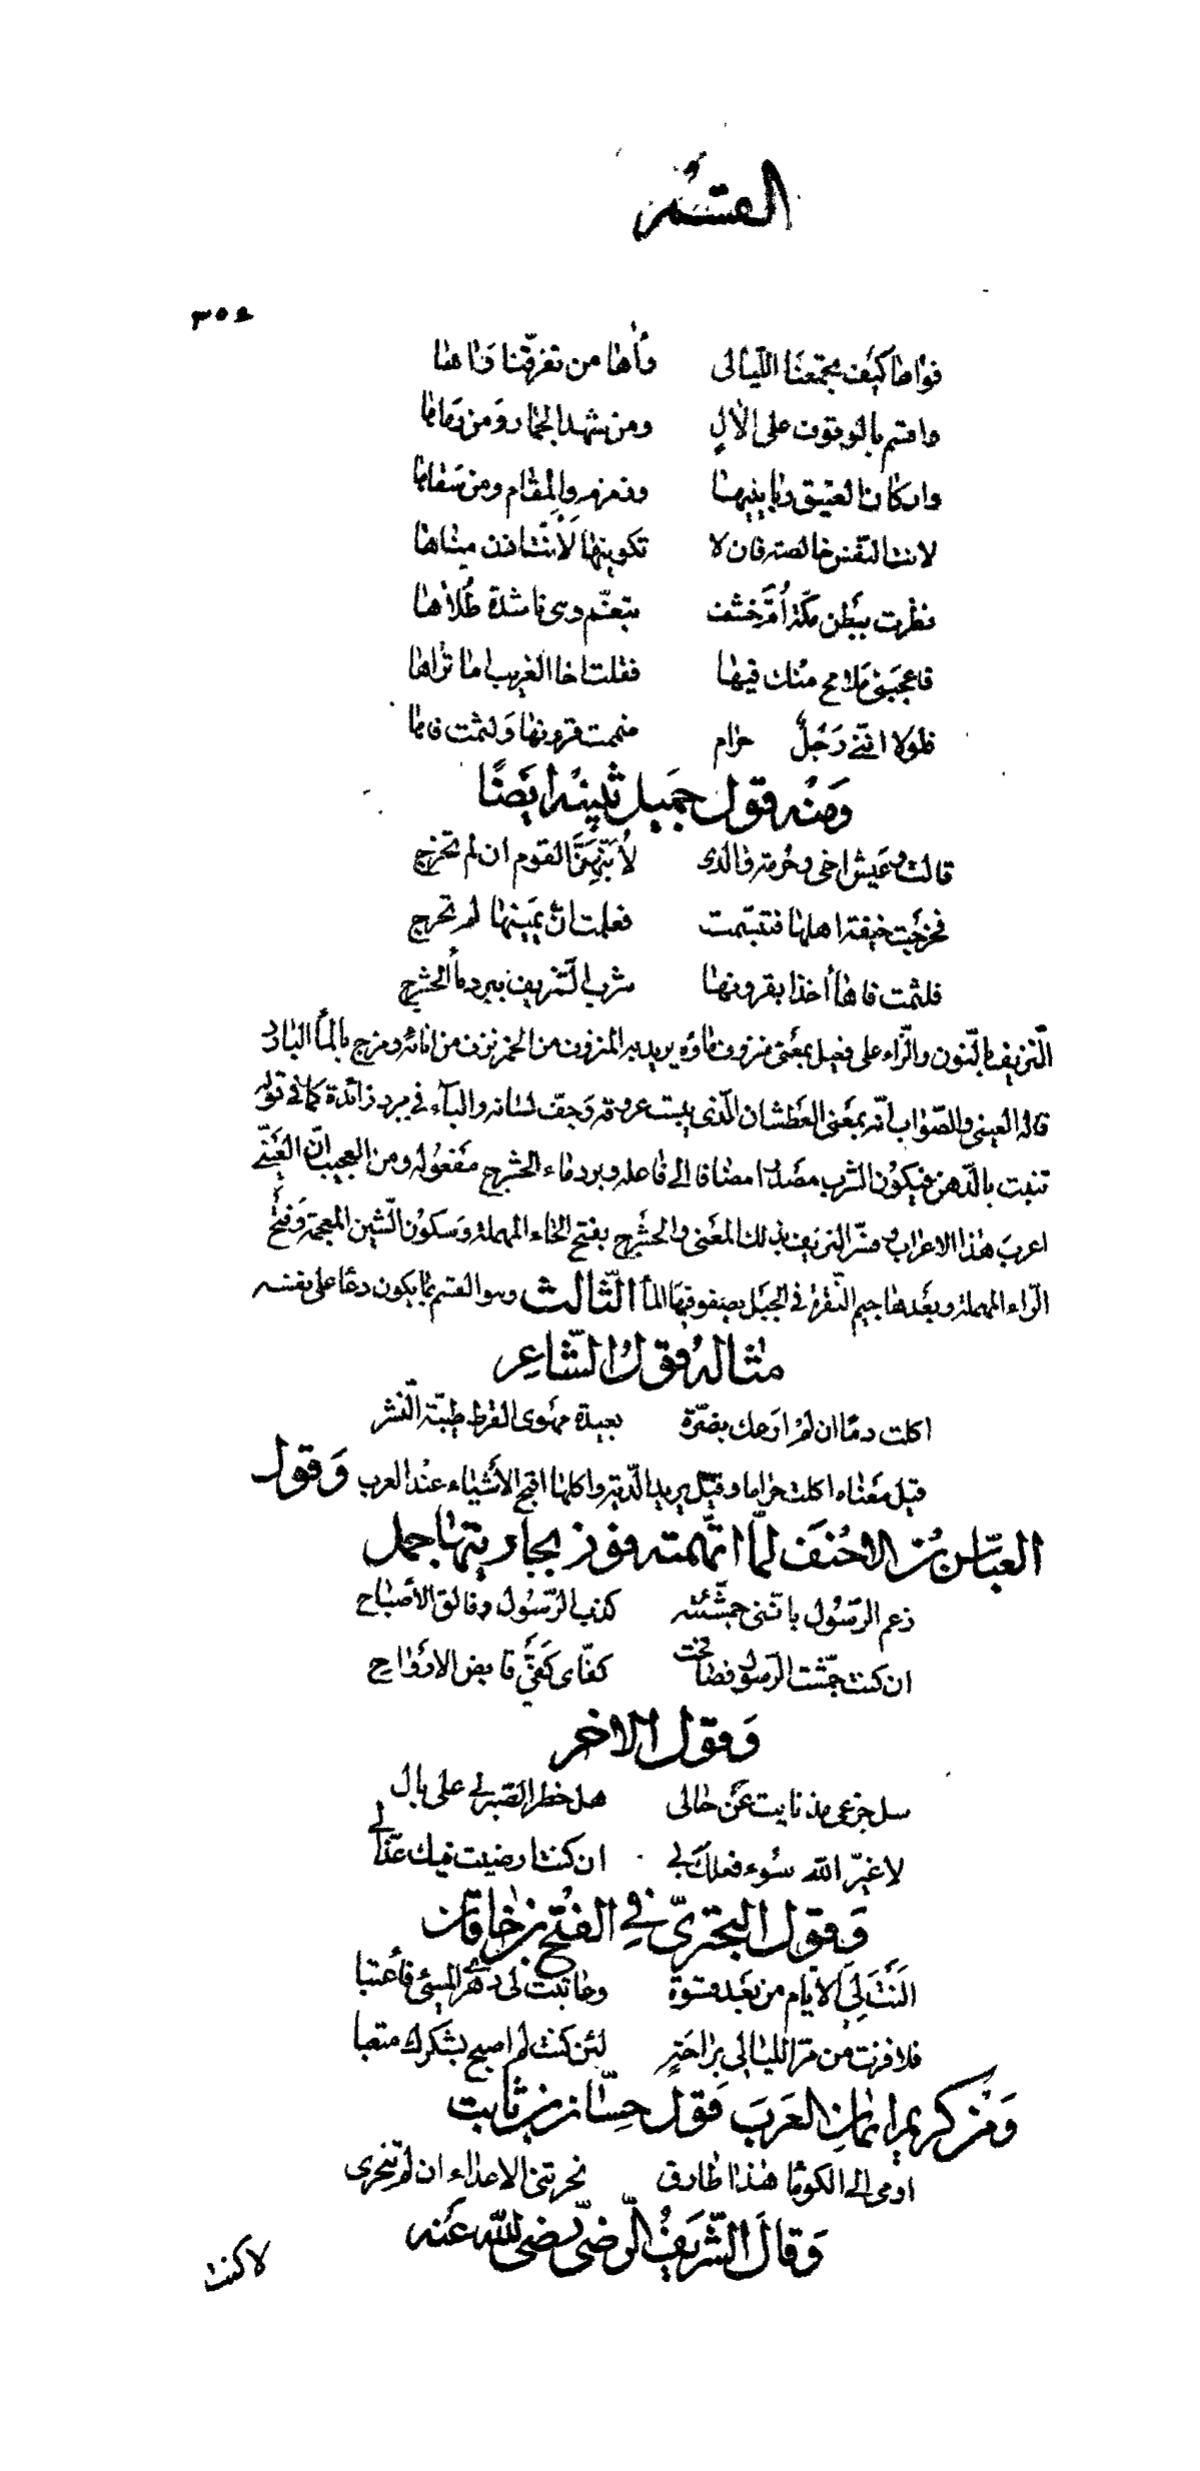 القسم
٣٥٤
فواها كيف تجمعنا الليالى وآها من تفرقنا وآها
واقسم بالوقوف على الال ومن شهد الجمار ومن رماها
واركان العتيق وبانيها وزمزم والمقام ومن سقاها
لانت النفس خالصة فان لا تكونيها لانت اذن مناها
نظرت ببطن مكة أم خشف تبغم وهى ناشدة طلاها
فاعجبنى ملامح منك فيها فقلت اخا الغريب اما تراها
فلولا اننى رجل حرام ضممت قرونها ولثمت فاها
ومنه قول جميل بثينه ايضا
قالت وعيش اخى وحرمة والدى لأنبهن القوم ان لم تخرج
فخرجت خيفة اهلها فتبسمت فعلمت ان يمينها لم تحرج
فلثمت فاها أخذا بقرونها شرب النزيف ببرد ماء الحشرج
النزيف بالنون والزاء على فعيل بمعنى منزوف ماؤه يريد به المنزوف من الخمر نزف من انائه ومزج بالماء البارد
قاله العينى والصواب انه بمعنى العطشان الذى يبست عروقه وجف لسانه والباء فى ببرد زائدة كما فى قوله
تنبت بالدهن فيكون الشرب مصدرا مضافا الى فاعله وبرد ماء الحشرج مفعوله ومن العجيب ان العينى
اعرب هذا الاعراب وفسر النزيف بذلك المعنى والحشرج بفتح الحاء المهملة وسكون الشين المعجمة وفتح
الراء المهملة وبعدها جيم النقرة فى الجبل يصفو فيها الماء الثالث وهو القسم بما يكون دعاء على نفسه
مثاله قول الشاعر
اكلت دما ان لم ارعك بضرة بعيدة مهوى القرط طيبة النشر
قيل معناه اكلت حراما وقيل يريد الدية واكلها اقبح الأشياء عند العرب وقول
العباس بن الاحنف لما اتهمته فوز بجاريتها جمل
زعم الرسول باننى جمشته كذب الرسول وفالق الأصباح
ان كنت جمشت الرسول فصافحت كفاى كفى قابض الارواح
وقول الاخر
سل جزعى مذ نايت عن حالى هل خطر الصبر لى على بال
لا غير الله سوء فعلك بى ان كنت ارضيت فيك عذالى
وقول البحترى فى الفتح بن خاقان
النت لى الأيام من بعد قسوة وعاتبت لى دهرى المسئ فأعتبا
فلا فزت من مر الليالى براحة لئن كنت لم اصبح بشكرك متعبا
ومن كريم ايمان العرب قول حسان بن ثابت
اومى الى الكوماء هذا طارق نحرتنى الاعداء ان لم تنحرى
وقال الشريف الرضى رضى الله عنه
لا كنت